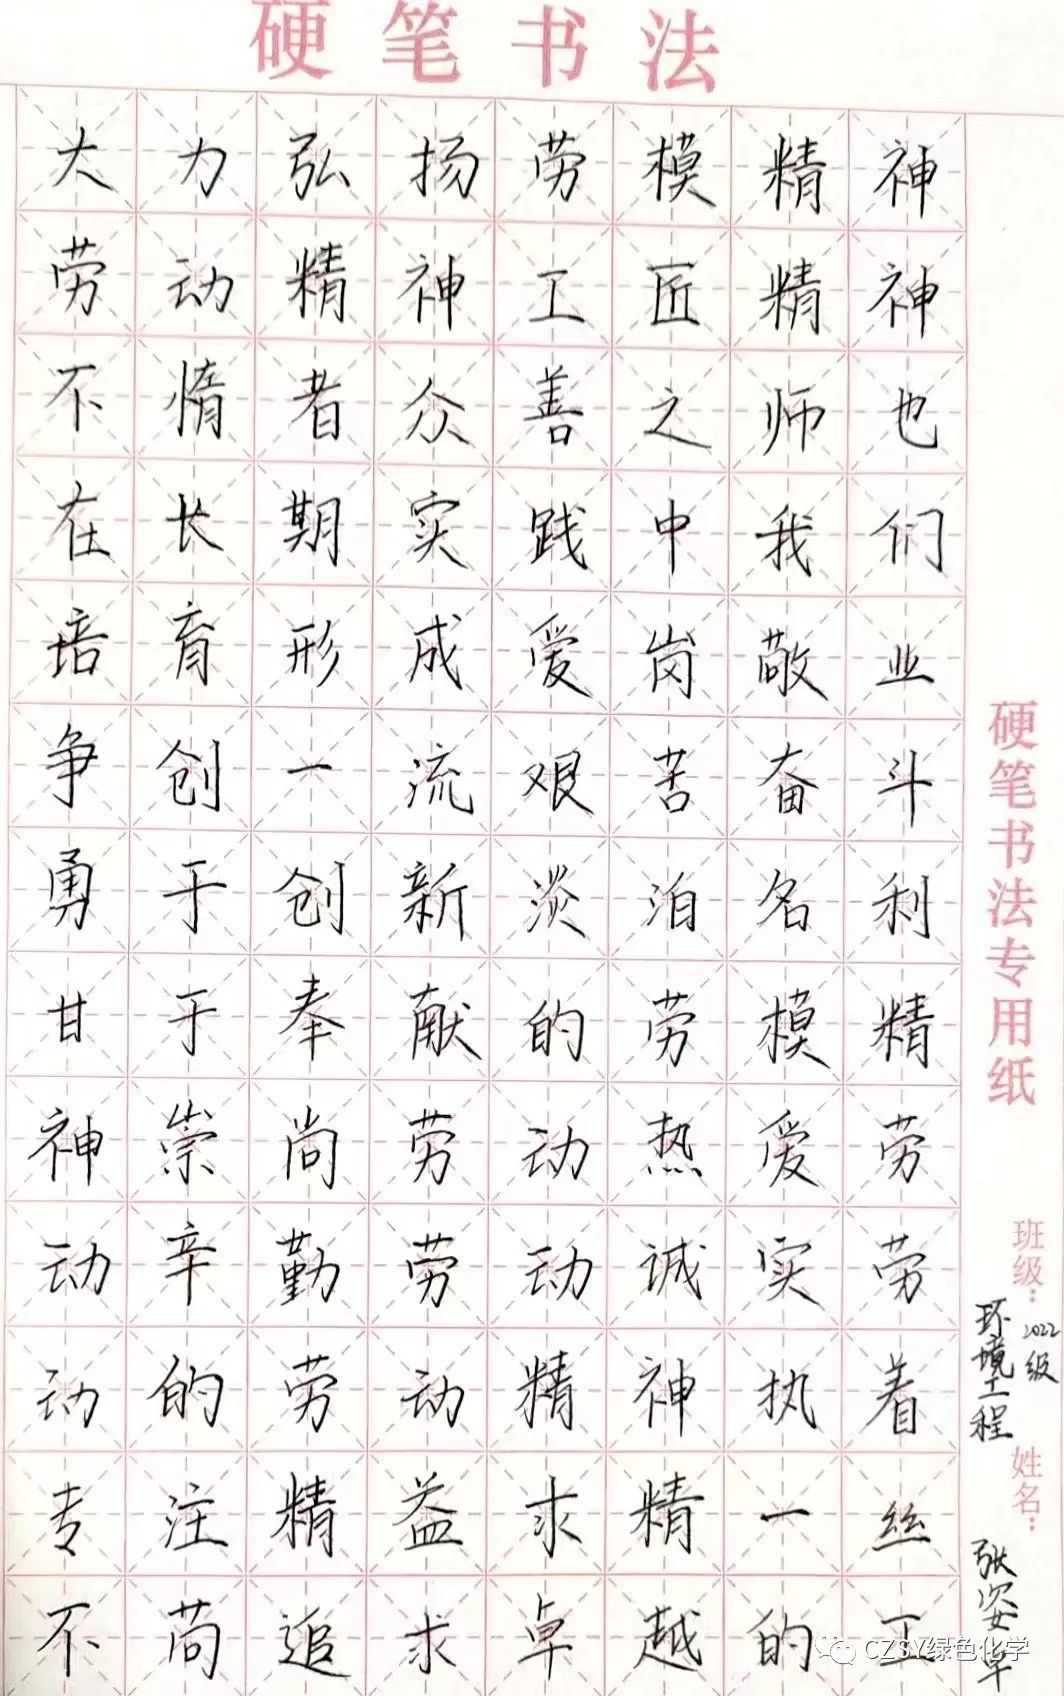 硬笔书法
大力弘扬劳模精神
劳动精神工匠精神
不惰者众善之师也
在长期实践中我们
培育形成爱岗敬业
争创一流艰苦奋斗
勇于创新淡泊名利
甘于奉献的劳模精
神崇尚劳动热爱劳
动辛勤劳动诚实劳
动的劳动精神执着
专注精益求精一丝
不苟追求卓越的工
硬笔书法专用纸
班级：
2022级
环境工程
姓名：
张姿
CZSY绿色化学